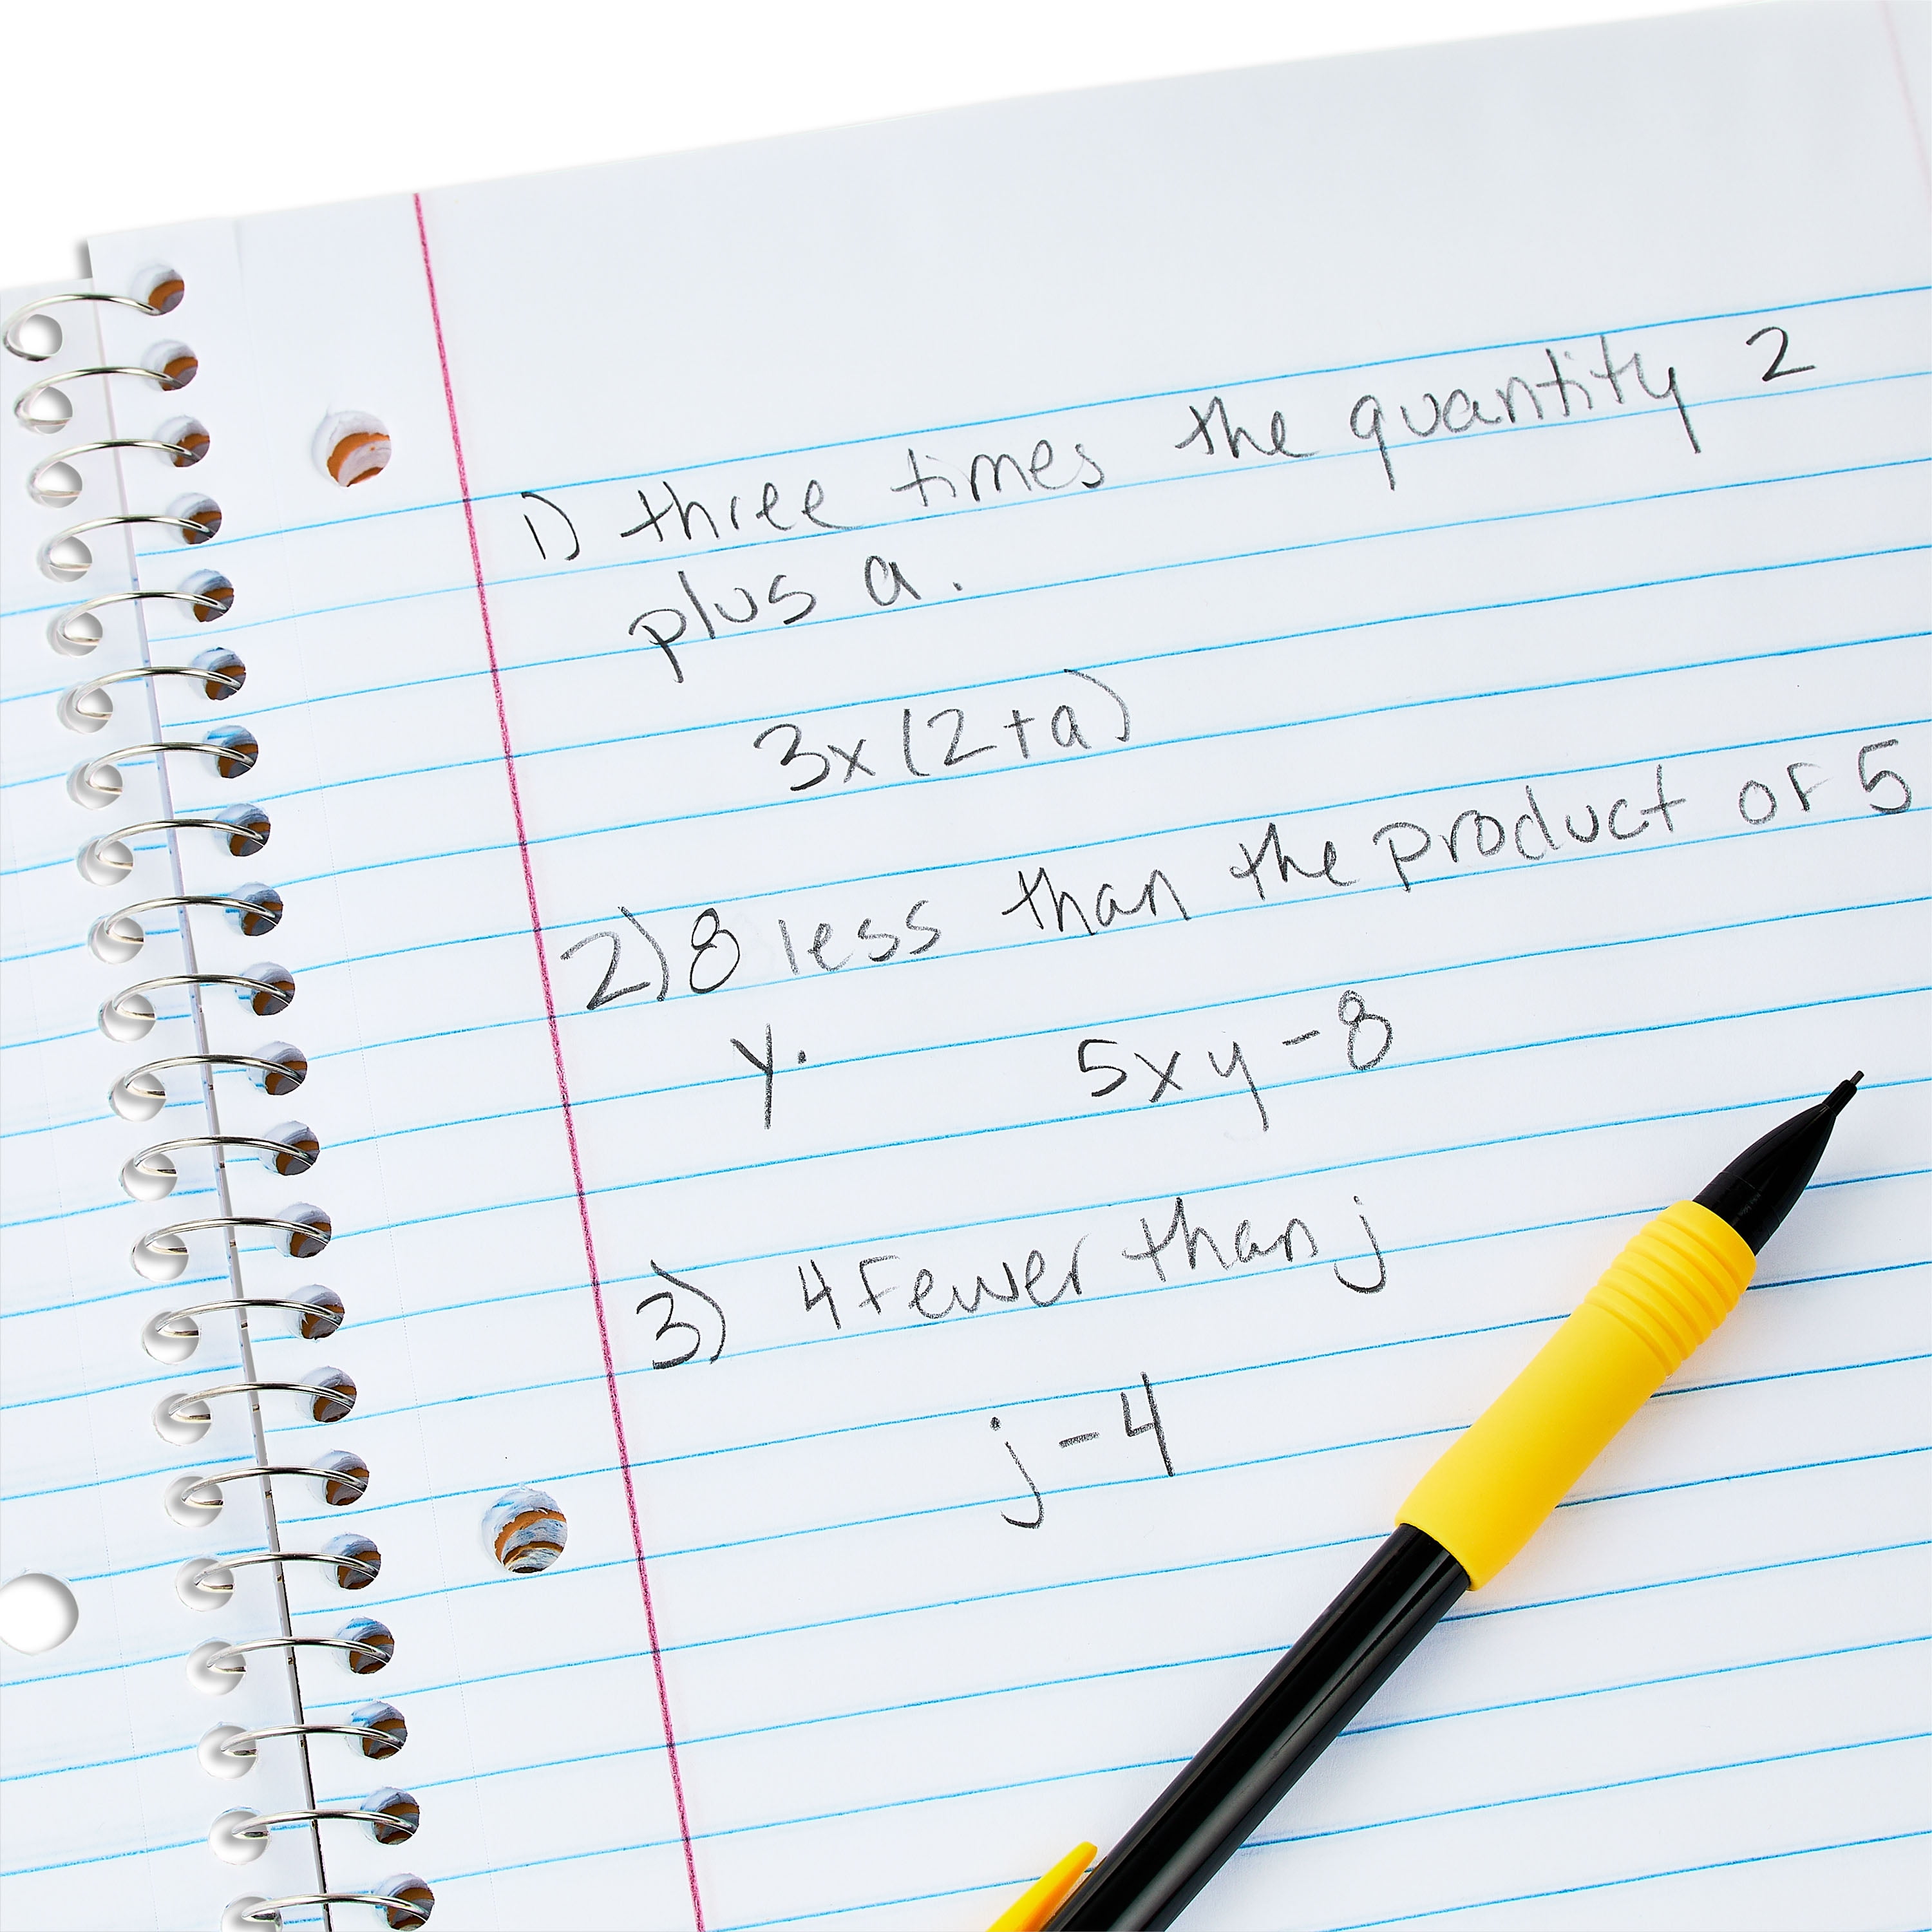 1) three times the quantity 2
plus a.
3x(2+a)
2) 8 less than the product of 5
y. 5xy-8
3) 4 fewer than j
j-4